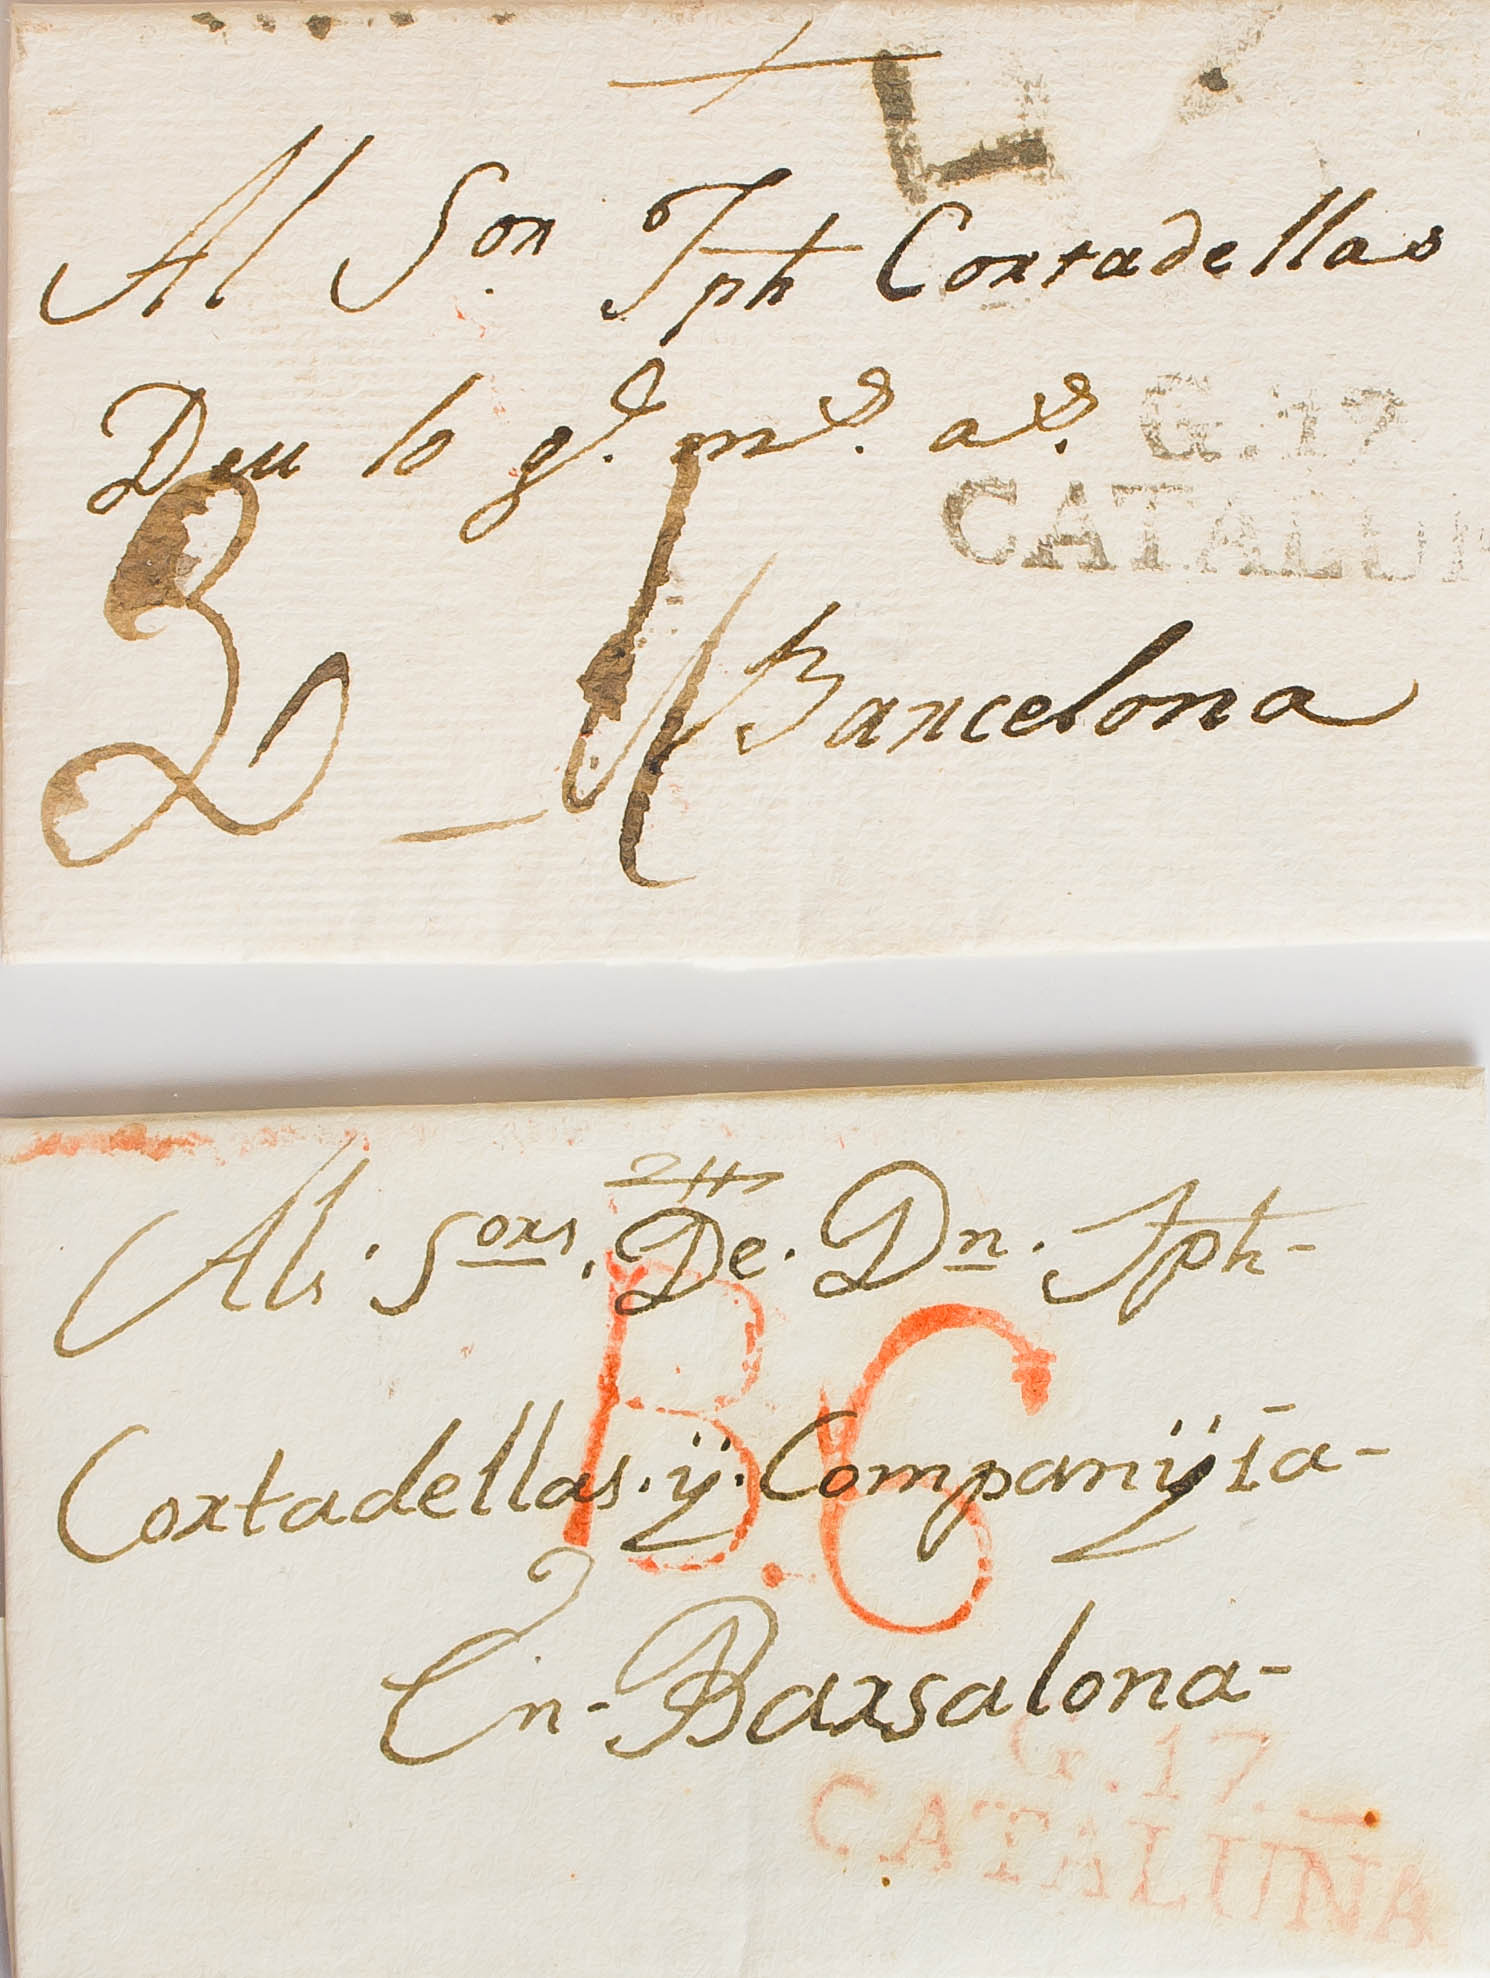 L
Al Sor. Jph Cortadellas
Deu lo gd. ms. as.
G.17
CATALUÑ
Barcelona
Als. Sors. De. Dn. Jph-
Cortadellas. ÿ. Companÿia-
B.C
En- Barsalona-
G.17.
CATALUÑA